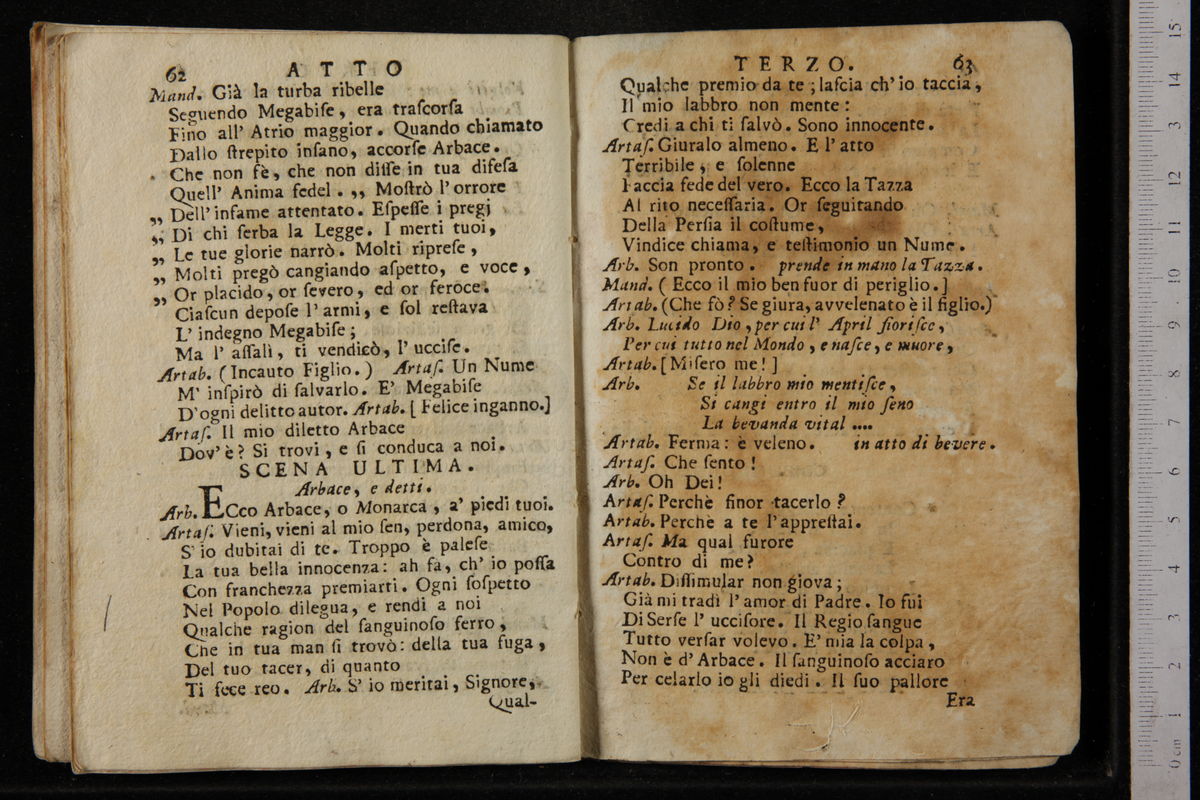 62 ATTO
Mand. Già la turba ribelle
Seguendo Megabiſe, era traſcorſa
Fino all' Atrio maggior. Quando chiamato
Dallo ſtrepito inſano, accorſe Arbace.
Che non fè, che non diſſe in tua difeſa
Quell' Anima fedel. ,, Moſtrò l' orrore
,, Dell' infame attentato. Eſpeſſe i pregj
,, Di chi ſerba la Legge. I merti tuoi,
,, Le tue glorie narrò. Molti ripreſe,
,, Molti pregò cangiando aſpetto, e voce,
,, Or placido, or ſevero, ed or feroce.
Ciaſcun depoſe l' armi, e ſol reſtava
L' indegno Megabiſe;
Ma l' aſſalì, ti vendicò, l' ucciſe.
Artab. (Incauto Figlio.) Artaſ. Un Nume
M' inſpirò di ſalvarlo. E' Megabiſe
D'ogni delitto autor. Artab. [Felice inganno.]
Artaſ. Il mio diletto Arbace
Dov' è? Si trovi, e ſi conduca a noi.
SCENA ULTIMA.
Arbace, e detti.
Arb. ECco Arbace, o Monarca, a' piedi tuoi.
Artaſ. Vieni, vieni al mio ſen, perdona, amico,
S' io dubitai di te. Troppo è paleſe
La tua bella innocenza: ah fa, ch' io poſſa
Con franchezza premiarti. Ogni ſoſpetto
Nel Popolo dilegua, e rendi a noi
Qualche ragion del ſanguinoſo ferro,
Che in tua man ſi trovò: della tua fuga,
Del tuo tacer, di quanto
Ti fece reo. Arb. S' io meritai, Signore,
Qual-
TERZO. 63
Qualche premio da te; laſcia ch' io taccia,
Il mio labbro non mente:
Credi a chi ti ſalvò. Sono innocente.
Artaſ. Giuralo almeno. E l' atto
Terribile, e ſolenne
Faccia fede del vero. Ecco la Tazza
Al rito neceſſaria. Or ſeguitando
Della Perſia il coſtume,
Vindice chiama, e teſtimonio un Nume.
Arb. Son pronto. prende in mano la Tazza.
Mand. (Ecco il mio ben fuor di periglio.]
Artab. (Che fò? Se giura, avvelenato è il figlio.)
Arb. Lucido Dio, per cui l' April fioriſce,
Per cui tutto nel Mondo, e naſce, e muore,
Artab. [Miſero me!]
Arb. Se il labbro mio mentiſce,
Si cangi entro il mio ſeno
La bevanda vital ....
Artab. Ferma: è veleno. in atto di bevere.
Artaſ. Che ſento!
Arb. Oh Dei!
Artaſ. Perchè finor tacerlo?
Artab. Perchè a te l' appreſtai.
Artaſ. Ma qual furore
Contro di me?
Artab. Diſſimular non giova;
Già mi tradì l' amor di Padre. Io fui
Di Serſe l' ucciſore. Il Regio ſangue
Tutto verſar volevo. E' mia la colpa,
Non è d' Arbace. Il ſanguinoſo acciaro
Per celarlo io gli diedi. Il ſuo pallore
Era
0 cm 1 2 3 4 5 6 7 8 9 10 11 12 13 14 15